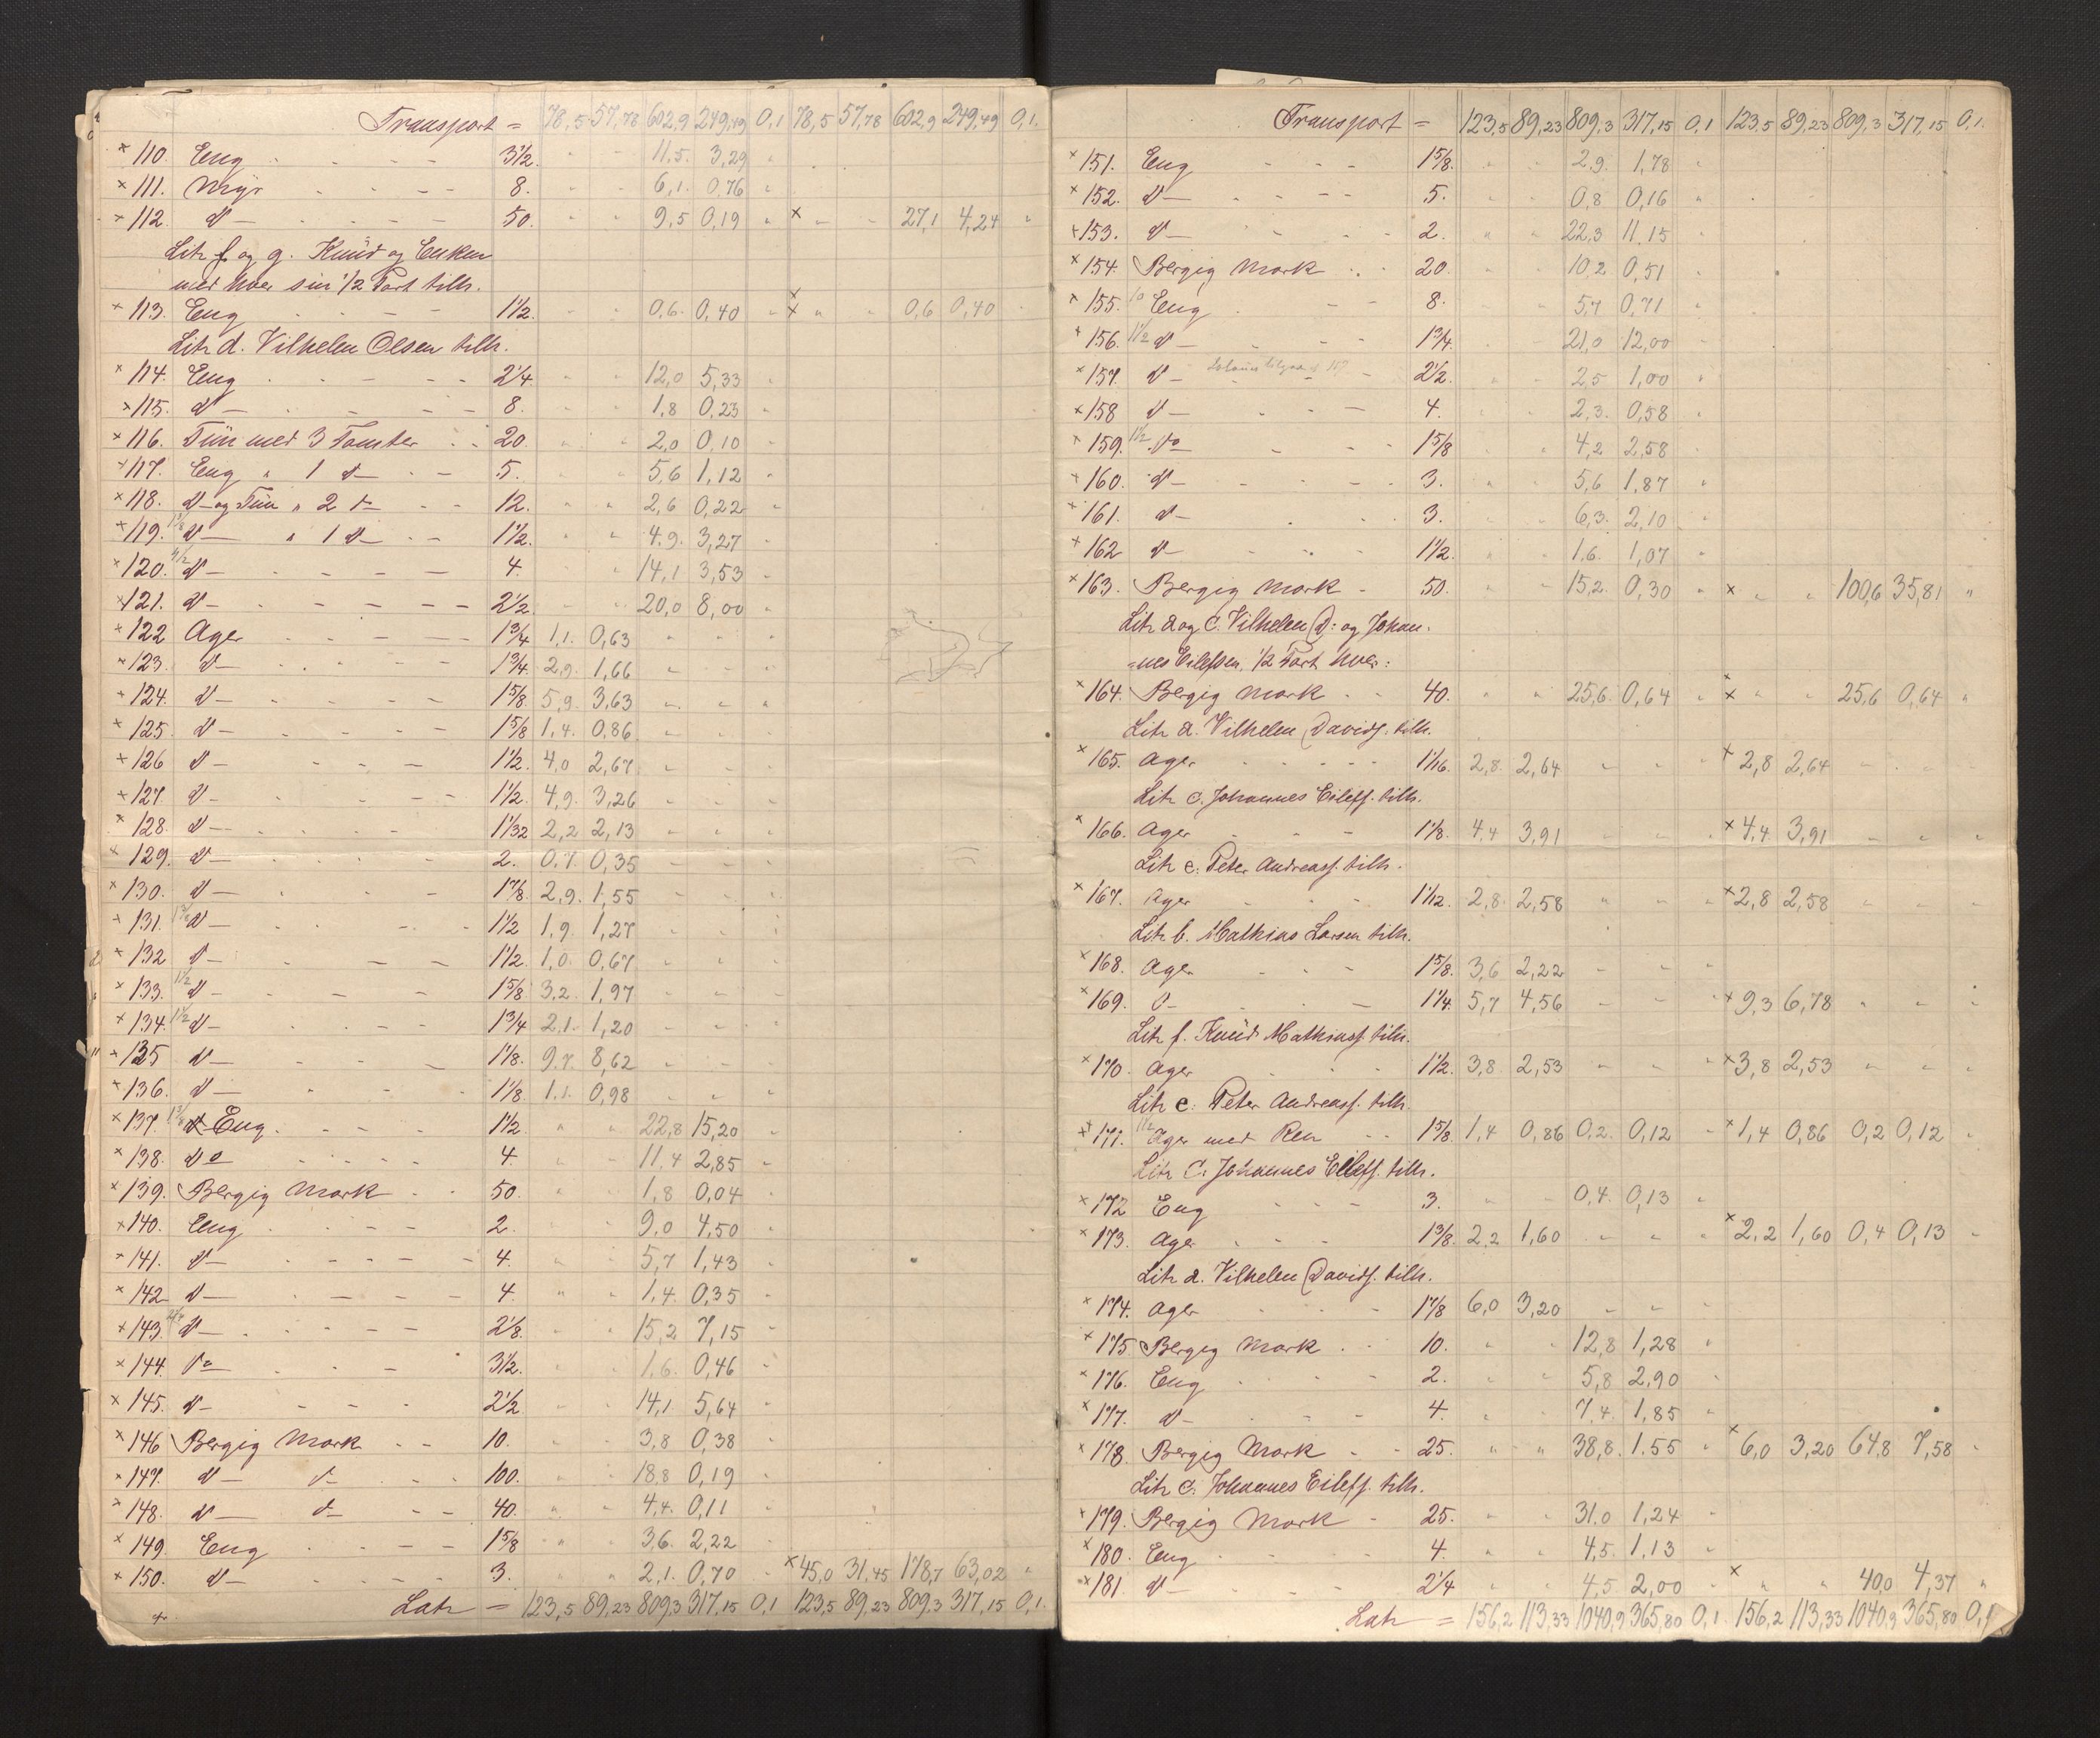 Transport = 78,5 57,78 602,9 249,49 0,1 78,5 57,78 602,9 249,49 0,1.
× 110. Eng - - - 3½. " " 11,5. 3,29 "
× 111. Myr - - - 8. " " 6,1. 0,76 "
× 112. d— - - - 50. " " 9,5 0,19 " × " " 27,1 4,24 "
Litr f og g. Knud og Enken
med hver sin ½ Part tilh.
× 113. Eng - - - 1½. " " 0,6. 0,40 " × " " 0,6 0,40
Litr d. Vilhelm Olsen tilh.
× 114. Eng - - - 2¼. " " 12,0 5,33 "
× 115. d— - - - 8. " " 1,8 0,23 "
× 116. Tün med 3 Tomter - - 20. " " 2,0 0,10 "
× 117. Eng " 1 d— - - 5. " " 5,6 1,12 "
× 118. d— og Tün " 2 d— - - 12. " " 2,6 0,22 "
× 119. d— " 1 d— - - 1½. " " 4,9. 3,27 "
× 120. 4½ d— - - - 4. " " 14,1 3,53 "
× 121. d— - - - 2½. " " 20,0 8,00 "
× 122 Ager - - - 1¾ 1,1. 0,63 " " "
× 123. d— - - - 1¾. 2,9. 1,66 " " "
× 124. d— - - - 1⅝. 5,9. 3,63 " " "
× 125. d— - - - 1⅝ 1,4. 0,86 " " "
× 126 d— - - - 1½. 4,0 2,67 " " "
× 127. d— - - - 1½. 4,9. 3,26 " " "
× 128. d— - - - 1 1/32 2,2 2,13 " " "
× 129. d— - - - 2. 0,7. 0,35 " " "
× 130. d— - - - 1⅞. 2,9. 1,55 " " "
× 131. d— - - - 1½ 1,9. 1,27 " " "
× 132 d— - - - 1½. 1,0. 0,67 " " "
× 133. 1½ d— - - - 1⅝. 3,2. 1,97 " " "
× 134. 1½ d— - - - 1¾ 2,1. 1,20 " " "
× 135 d— - - - 1⅛. 9,7. 8,62 " " "
× 136. d— - - - 1⅛ 1,1. 0,98 " " "
× 137. Eng. - - - 1½. " " 22,8 15,20 "
× 138. do - - - 4. " " 11,4 2,85 "
× 139. Bergig Mark - - 50. " " 1,8 0,04 "
× 140. Eng - - - 2. " " 9,0 4,50 "
× 141. d— - - - 4. " " 5,7 1,43 "
× 142 d— - - - 4. " " 1,4. 0,35 "
× 143. d— - - - 2⅛. " " 15,2 7,15 "
× 144. do - - - 3½. " " 1,6. 0,46 "
× 145. d— - - - 2½ " " 14,1. 5,64 "
× 146 Bergig Mark - - 10. " " 3,8 0,38 "
× 147. d— d— - - 100. " " 18,8 0,19 "
× 148. d— d— - - 40. " " 4,4. 0,11 "
× 149. Eng - - - 1⅝ " " 3,6. 2,22 "
× 150. d— - - - 3. " " 2,1. 0,70 " × 45,0 31,45 178,7 63,02 "
Latr = 123,5 89,23 809,3 317,15 0,1 123,5 89,23 809,3 317,15 0,1.
Transport = 123,5 89,23 809,3 317,15 0,1 123,5 89,23 809,3 317,15 0,1.
× 151. Eng - - - 1⅝. " " 2,9. 1,78 "
× 152. d— - - - 5. " " 0,8 0,16 "
× 153. d— - - - 2. " " 22,3 11,15 "
× 154. Bergig Mark - - 20. " " 10,2 0,51 "
× 155. 10 Eng - - 8. " " 5,7 0,71 "
× 156. 1½ d— - - - 1¾. " " 21,0 12,00 "
× 157. d— - - - 2½. " " 2,5 1,00 "
× 158 d— - - - 4. " " 2,3. 0,58 "
× 159. 1½ do - - 1⅝ " " 4,2 2,58 "
× 160. d— - - - 3. " " 5,6 1,87 "
× 161. d— - - - 3. " " 6,3. 2,10 "
× 162 d— - - - 1½. " " 1,6. 1,07 "
× 163. Bergig Mark - 50. " " 15,2. 0,30 " × " " 100,6 35,81 "
Litr a og c. Vilhelm D: og Johan-
=nes Eilefsen, ½ Part hver:
× 164. Bergig Mark - - 40. " " 25,6. 0,64 " × " " 25,6 0,64 "
Litr a. Vilhelm Davids. tilh.
× 165. Ager - - - 1 1/16. 2,8. 2,64 " " " × 2,8 2,64 " "
Litr c. Johannes Eilefs. tilh.
× 166. Ager - - - 1⅛. 4,4 3,91 " " " × 4,4. 3,91 " " "
Litr e. Peter Andreass. tilh.
× 167. Ager - - - 1 1/12. 2,8. 2,58 " " " × 2,8 2,58 " " "
Litr b. Mathias Larsen tilh.
× 168. Ager - - - 1⅝. 3,6 2,22 " " "
× 169. d— - - - 1¼. 5,7 4,56 " " " × 9,3 6,78 " " "
Litr f. Knud Mathiass. tilh.
× 170. Ager - - - 1½. 3,8. 2,53 " " " × 3,8 2,53 " " "
Litr e. Peter Andreass. tilh.
× 171. 1½ Ager med Ren - - 1⅝. 1,4 0,86 0,2. 0,12 " × 1,4 0,86 0,2 0,12 "
Litr c. Johannes Eilefs. tilh.
× 172 Eng - - - 3. " " 0,4. 0,13 "
× 173. Ager - - - 1⅜. 2,2 1,60 " " " × 2,2 1,60 0,4 0,13 "
Litr a. Vilhelm Davids. tilh.
× 174. Ager - - - 1⅞ 6,0 3,20 " " "
× 175 Bergig Mark - - 10. " " 12,8 1,28 "
× 176. Eng - - - 2. " " 5,8 2,90 "
× 177. d— - - - 4. " " 7,4. 1,85 "
× 178. Bergig Mark - - 25. " " 38,8. 1.55 " × 6,0 3,20 64,8 7,58 "
Litr c. Johannes Eilefs. tilh.
× 179. Bergig Mark - 25. " " 31,0 1,24 "
× 180. Eng - - - 4. " " 4,5. 1,13 "
× 181. d— - - - 2¼ " " 4,5 2,00 " × " " 40,0 4,37 "
Latr = 156,2 113,33 1040,9 365,80 0,1. 156,2 113,33 1040,9 365,80 0,1